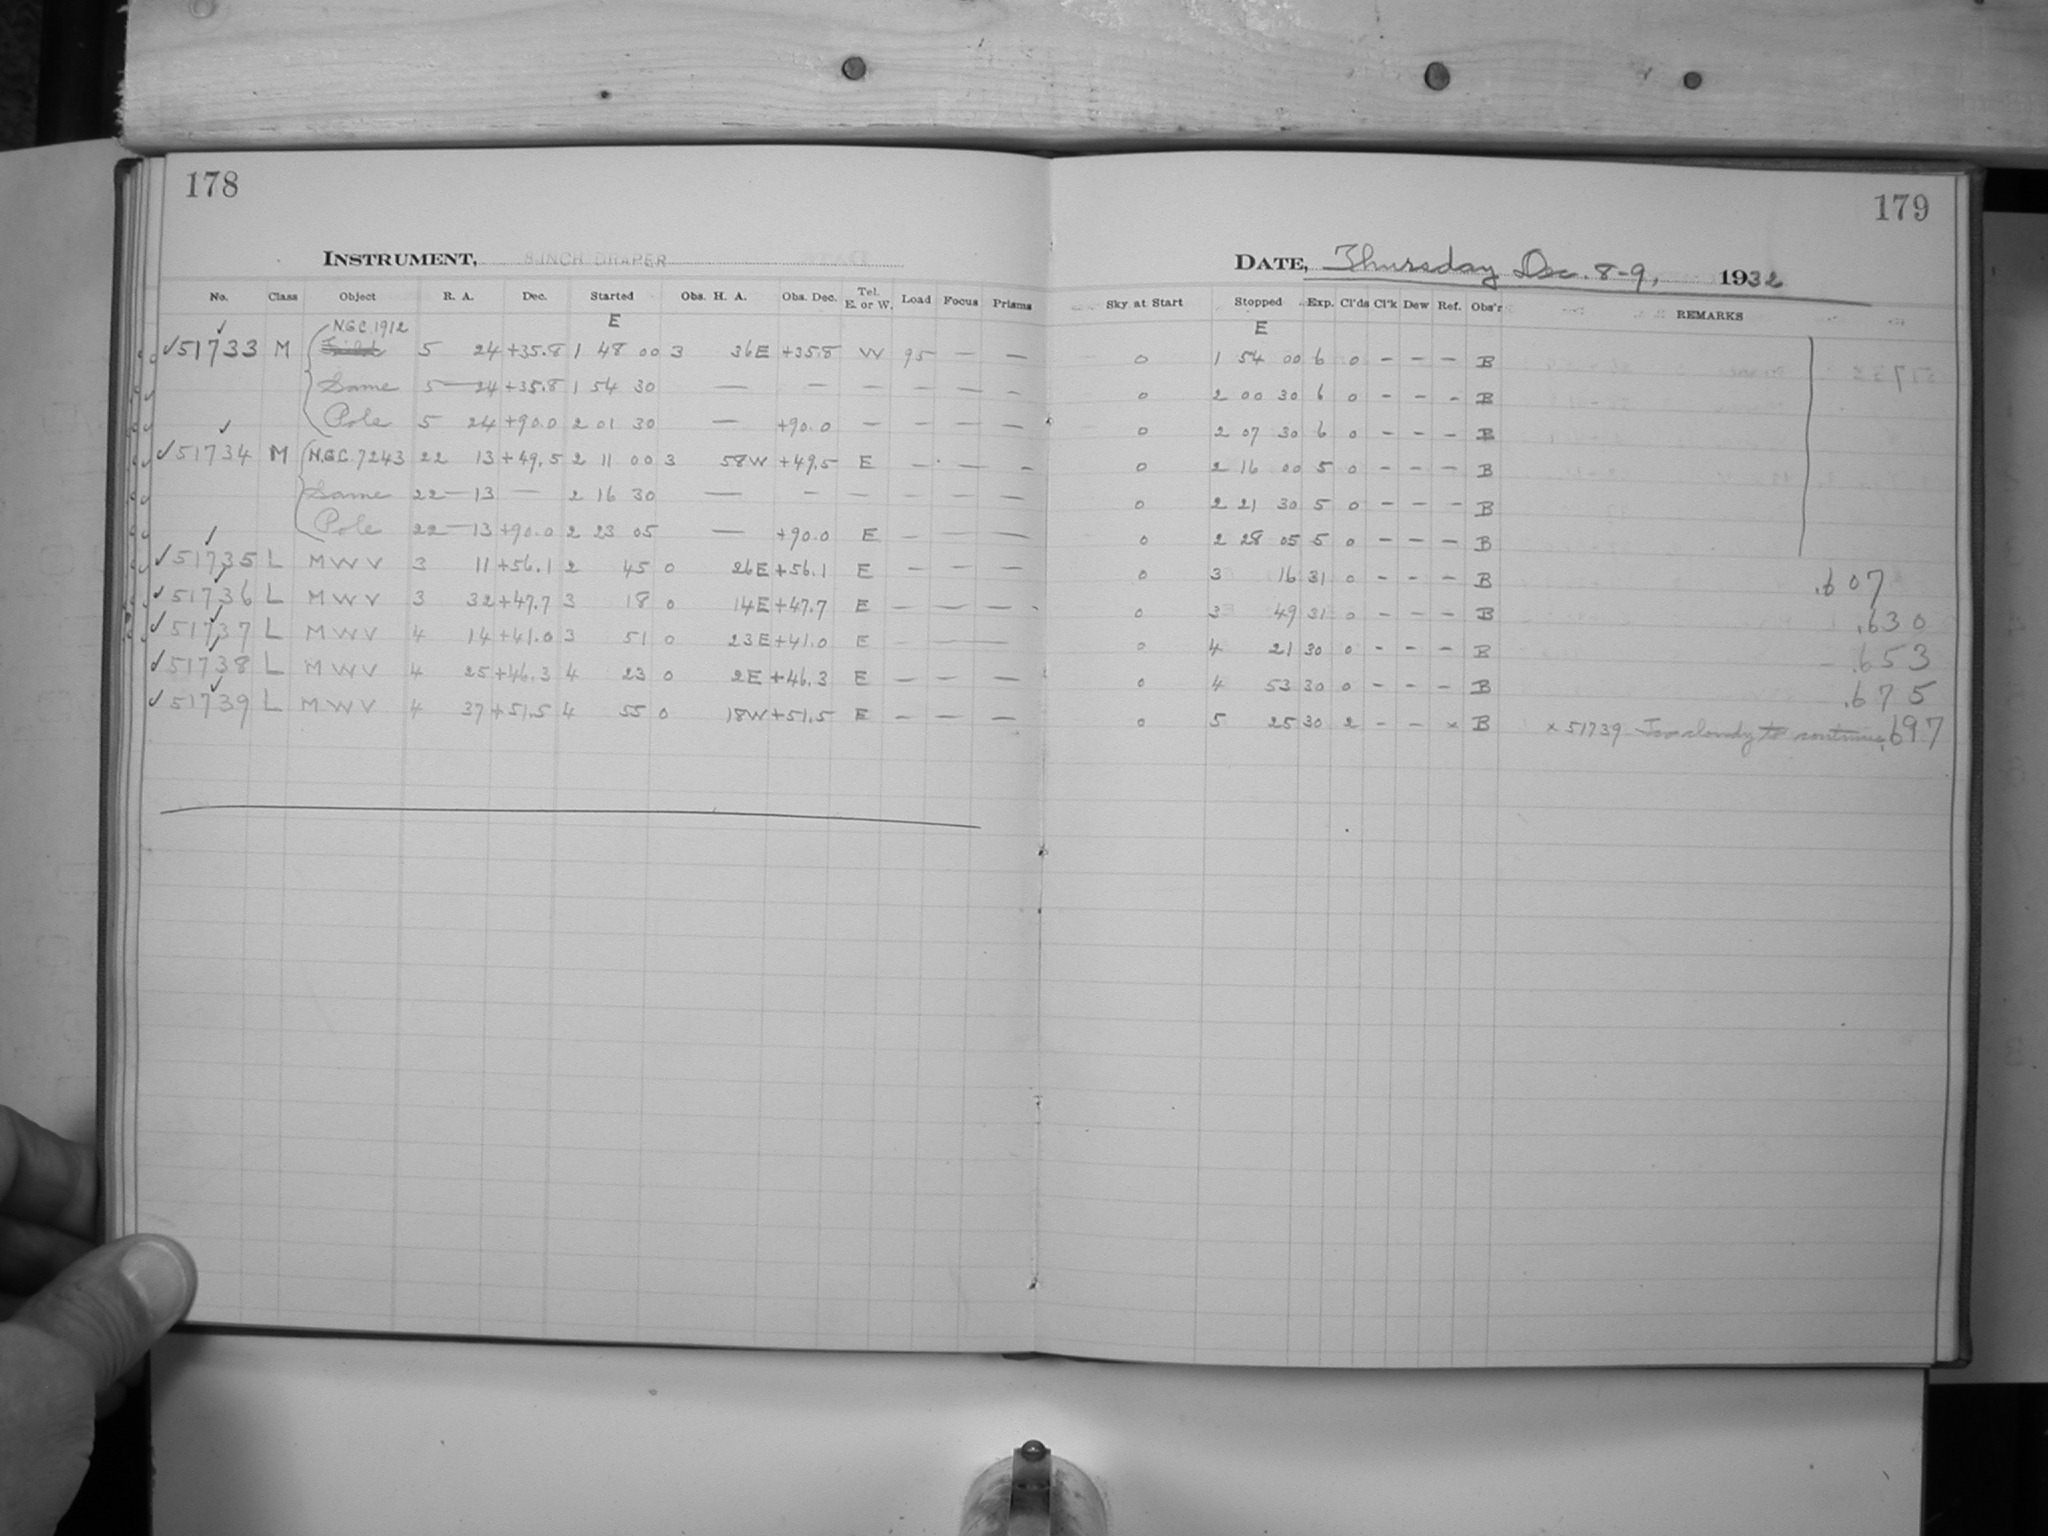 178
INSTRUMENT, 8 INCH DRAPER
No. Class Object R. A. Dec. Started Obs. H. A. Obs. Dec. Tel. E. or W. Load Focus Prisms
E
N.G.C. 1912
✓51733 M 5 24 +35.8 1 48 00 3 36E +35.8 W 95 — —
Same 5 — 24 +35.8 1 54 30 — — — — — —
Pole 5 24 +90.0 2 01 30 — +90.0 — — — —
✓51734 M N.G.C. 7243 22 13 +49.5 2 11 00 3 58W +49.5 E — — —
Same 22 — 13 — 2 16 30 — — — — — —
Pole 22 — 13 +90.0 2 23 05 — +90.0 E — — —
✓51735 L M W V 3 11 +56.1 2 45 0 26E +56.1 E — — —
✓51736 L M W V 3 32 +47.7 3 18 0 14E +47.7 E — — —
✓51737 L M W V 4 14 +41.0 3 51 0 23E +41.0 E — — —
✓51738 L M W V 4 25 +46.3 4 23 0 2E +46.3 E — — —
✓51739 L M W V 4 37 +51.5 4 55 0 18W +51.5 E — — —
179
DATE, Thursday Dec. 8-9, 1932
Sky at Start Stopped Exp. Cl'ds Cl'k Dew Ref. Obs'r REMARKS
E
0 1 54 00 6 0 - - - B
0 2 00 30 6 0 - - - B
0 2 07 30 6 0 - - - B
0 2 16 00 5 0 - - - B
0 2 21 30 5 0 - - - B
0 2 28 05 5 0 - - - B
0 3 16 31 0 - - - B .607
0 3 49 31 0 - - - B .630
0 4 21 30 0 - - - B .653
0 4 53 30 0 - - - B .675
0 5 25 30 2 - - x B x 51739 Too cloudy to continue. .697